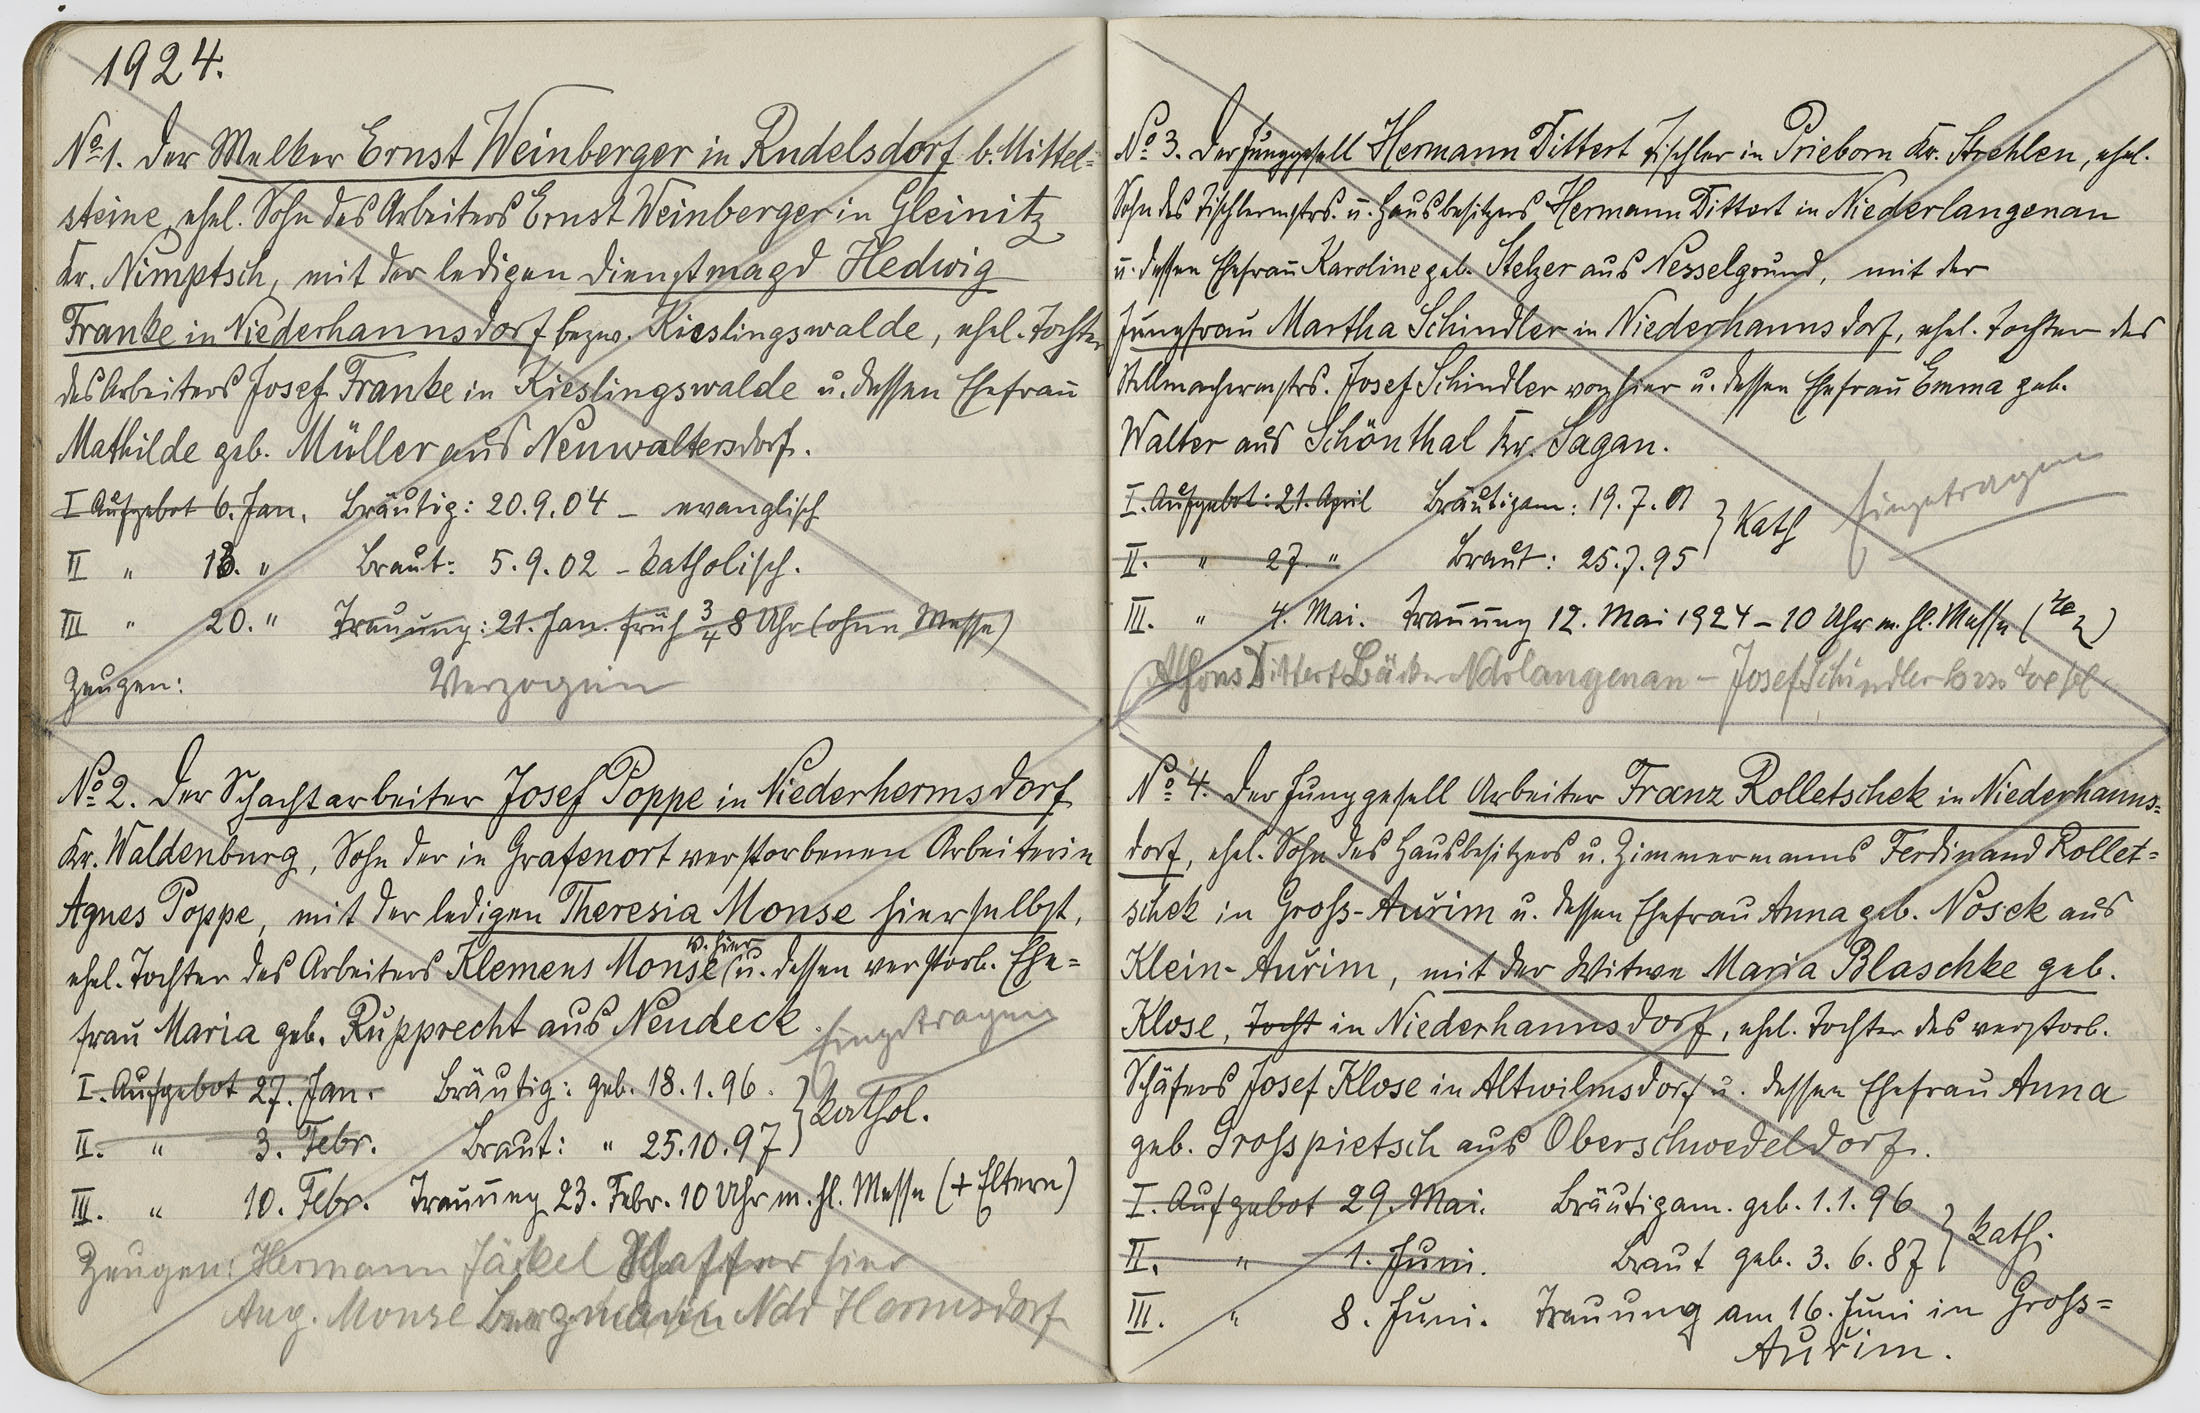 1924.
No 1. Der Melker Ernst Weinberger in Rudelsdorf b. Mittel=
steine, ehel. Sohn des Arbeiters Ernst Weinberger in Gleinitz
Kr. Nimptsch, mit der ledigen Dienstmagd Hedwig
Franke in Niederhannsdorf bezw. Kieslingswalde, ehel. Tochter
des Arbeiters Josef Franke in Kieslingswalde u. dessen Ehefrau
Mathilde geb. Müller aus Neuwaltersdorf.
I Aufgebot 6. Jan. Bräutig: 20.9.04 – evanglisch
II " 13. " Braut: 5.9.02 – katholisch.
III " 20. " Trauung: 21. Jan. früh 3/4 8 Uhr (ohne Messe)
Zeugen: Verzogen
No 2. Der Schachtarbeiter Josef Poppe in Niederhermsdorf
Kr. Waldenburg, Sohn der in Grafenort verstorbenen Arbeiterin
Agnes Poppe, mit der ledigen Theresia Monse hierselbst,
v. hier
ehel. Tochter des Arbeiters Klemens Monse u. dessen verstorb. Ehe=
frau Maria geb. Rupprecht aus Neudeck. Eingetragen
I. Aufgebot 27. Jan. Bräutig: geb. 18.1.96.
} kathol.
II. " 3. Febr. Braut: " 25.10.97
III. " 10. Febr. Trauung 23. Febr. 10 Uhr m. hl. Messe (+ Eltern)
Zeugen: Hermann Jäckel Schaffer hier
Aug. Monse Bergmann Ndr Hermsdorf
No 3. Der Junggesell Hermann Dittert Tischler in Prieborn Kr. Strehlen, ehel.
Sohn des Tischlermstrs. u. Hausbesitzers Hermann Dittert in Niederlangenau
u. dessen Ehefrau Karoline geb. Stelzer aus Nesselgrund, mit der
Jungfrau Martha Schindler in Niederhannsdorf, ehel. Tochter des
Stellmachermstrs. Josef Schindler von hier u. dessen Ehefrau Emma geb.
Walter aus Schönthal Kr. Sagan.
I. Aufgebot: 21. April Bräutigam: 19.7.01
} Kath Eingetragen
II. " 27 " Braut: 25.7.95
III. " 4. Mai. Trauung 12. Mai 1924 – 10 Uhr m. hl. Messe
Alfons Dittert Bäcker Ndrlangenau – Josef Schindler
No 4. Der Junggesell Arbeiter Franz Rolletschek in Niederhanns=
dorf, ehel. Sohn des Hausbesitzers u. Zimmermanns Ferdinand Rollet=
schek in Gross-Auřim u. dessen Ehefrau Anna geb. Nosek aus
Klein-Auřim, mit der Witwe Maria Blaschke geb.
Klose, Tocht in Niederhannsdorf, ehel. Tochter des verstorb.
Schäfers Josef Klose in Altwilmsdorf u. dessen Ehefrau Anna
geb. Grosspietsch aus Oberschwedeldorf.
I. Aufgebot 29. Mai. Bräutigam. geb. 1.1.96
} kath.
II. " 1. Juni. Braut geb. 3.6.87
III. " 8. Juni. Trauung am 16. Juni in Gross=
Auřim.